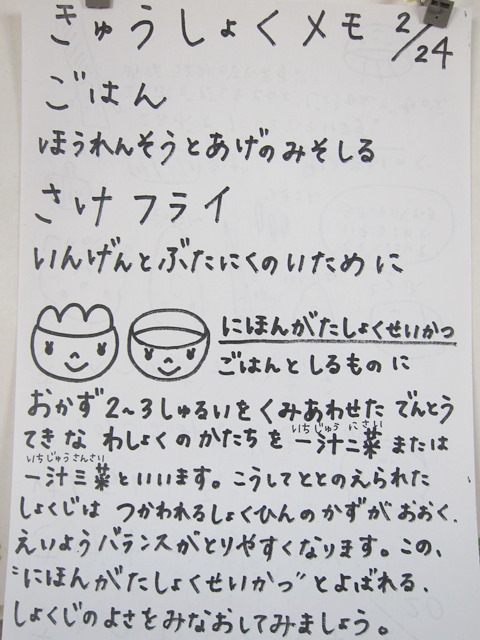 きゅうしょくメモ 2/24
ごはん
ほうれんそうとあげのみそしる
さけフライ
いんげんとぶたにくのいために
にほんがたしょくせいかつ
ごはんとしるものに
おかず2~3しゅるいをくみあわせたでんとう
てきなわしょくのかたちを一汁二菜または
いちじゅうにさい
一汁三菜といいます。こうしてととのえられた
いちじゅうさんさい
しょくじはつかわれるしょくひんのかずがおおく、
えいようバランスがとりやすくなります。この、
"にほんがたしょくせいかつ"とよばれる、
しょくじのよさをみなおしてみましょう。